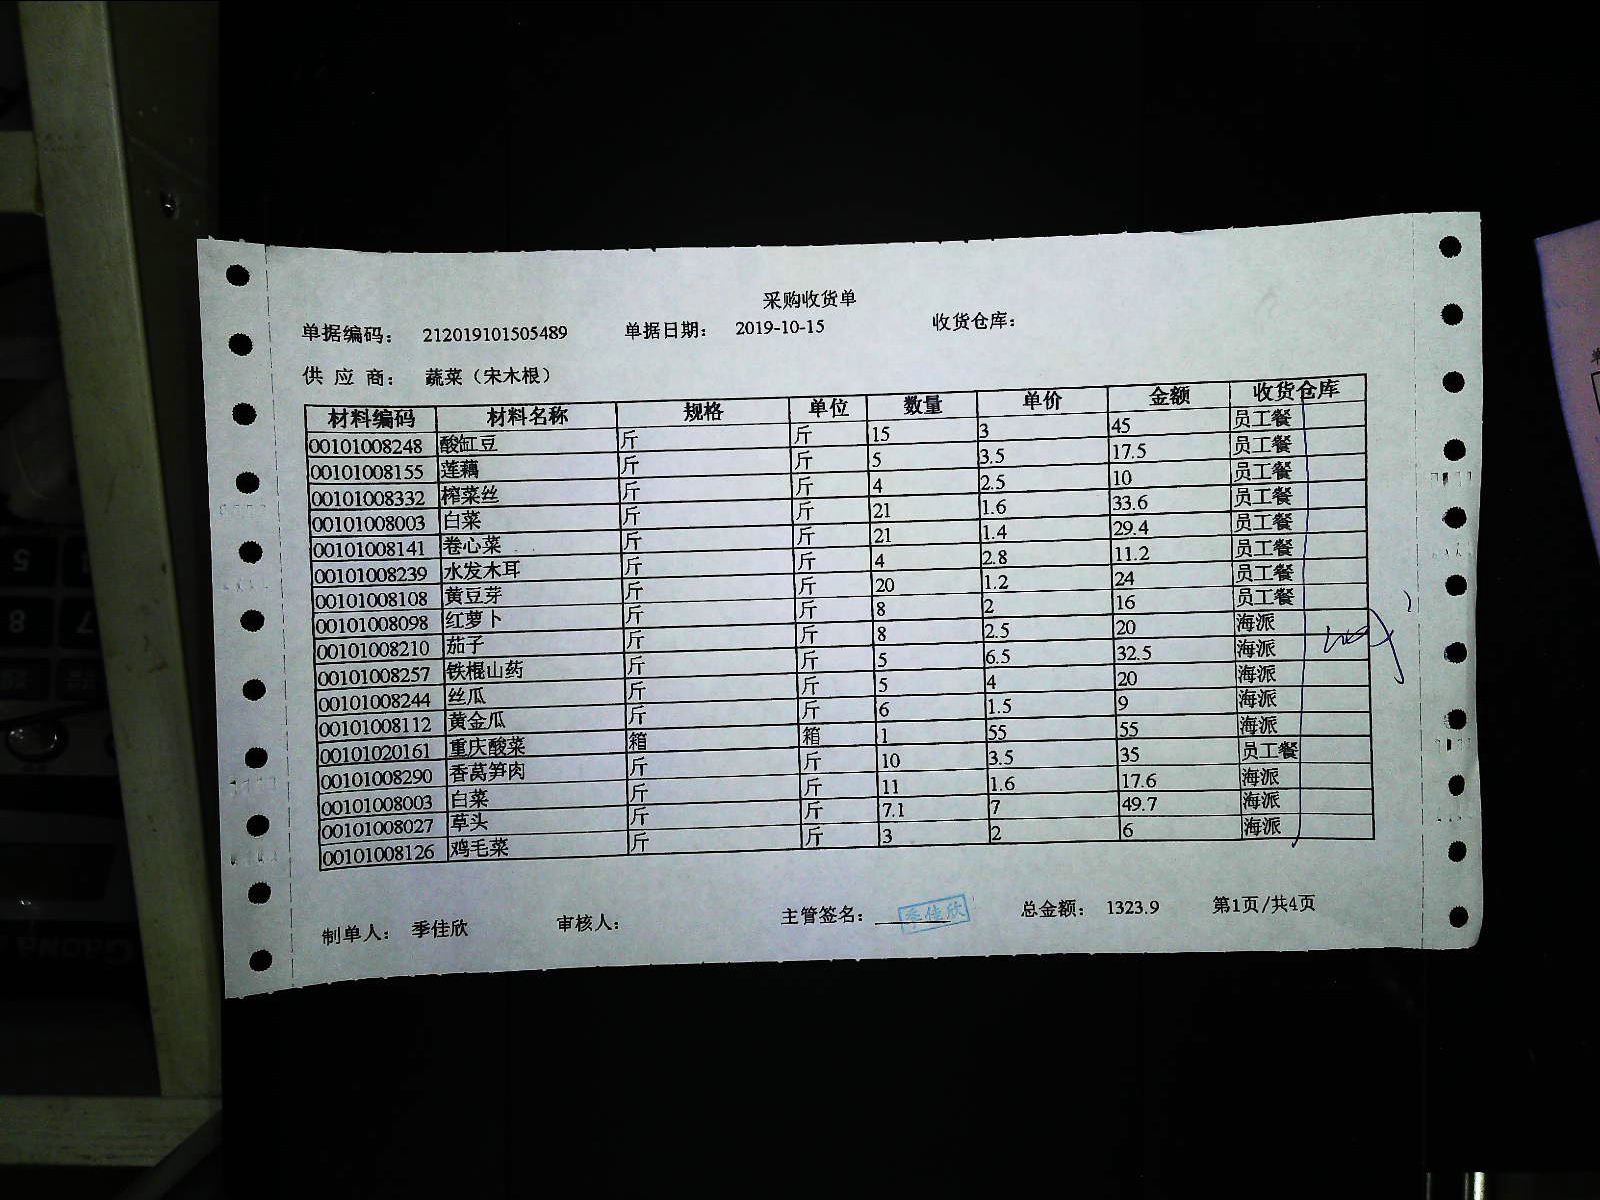 采购收货单
单据编码： 212019101505489 单据日期： 2019-10-15 收货仓库：
供 应 商： 蔬菜（宋木根）
材料编码 材料名称 规格 单位 数量 单价 金额 收货仓库
00101008248 酸缸豆 斤 斤 15 3 45 员工餐
00101008155 莲藕 斤 斤 5 3.5 17.5 员工餐
00101008332 榨菜丝 斤 斤 4 2.5 10 员工餐
00101008003 白菜 斤 斤 21 1.6 33.6 员工餐
00101008141 卷心菜 斤 斤 21 1.4 29.4 员工餐
00101008239 水发木耳 斤 斤 4 2.8 11.2 员工餐
00101008108 黄豆芽 斤 斤 20 1.2 24 员工餐
00101008098 红萝卜 斤 斤 8 2 16 员工餐
00101008210 茄子 斤 斤 8 2.5 20 海派
00101008257 铁棍山药 斤 斤 5 6.5 32.5 海派
00101008244 丝瓜 斤 斤 5 4 20 海派
00101008112 黄金瓜 斤 斤 6 1.5 9 海派
00101020161 重庆酸菜 箱 箱 1 55 55 海派
00101008290 香莴笋肉 斤 斤 10 3.5 35 员工餐
00101008003 白菜 斤 斤 11 1.6 17.6 海派
00101008027 草头 斤 斤 7.1 7 49.7 海派
00101008126 鸡毛菜 斤 斤 3 2 6 海派
制单人： 季佳欣 审核人： 主管签名： 季佳欣 总金额： 1323.9 第1页/共4页